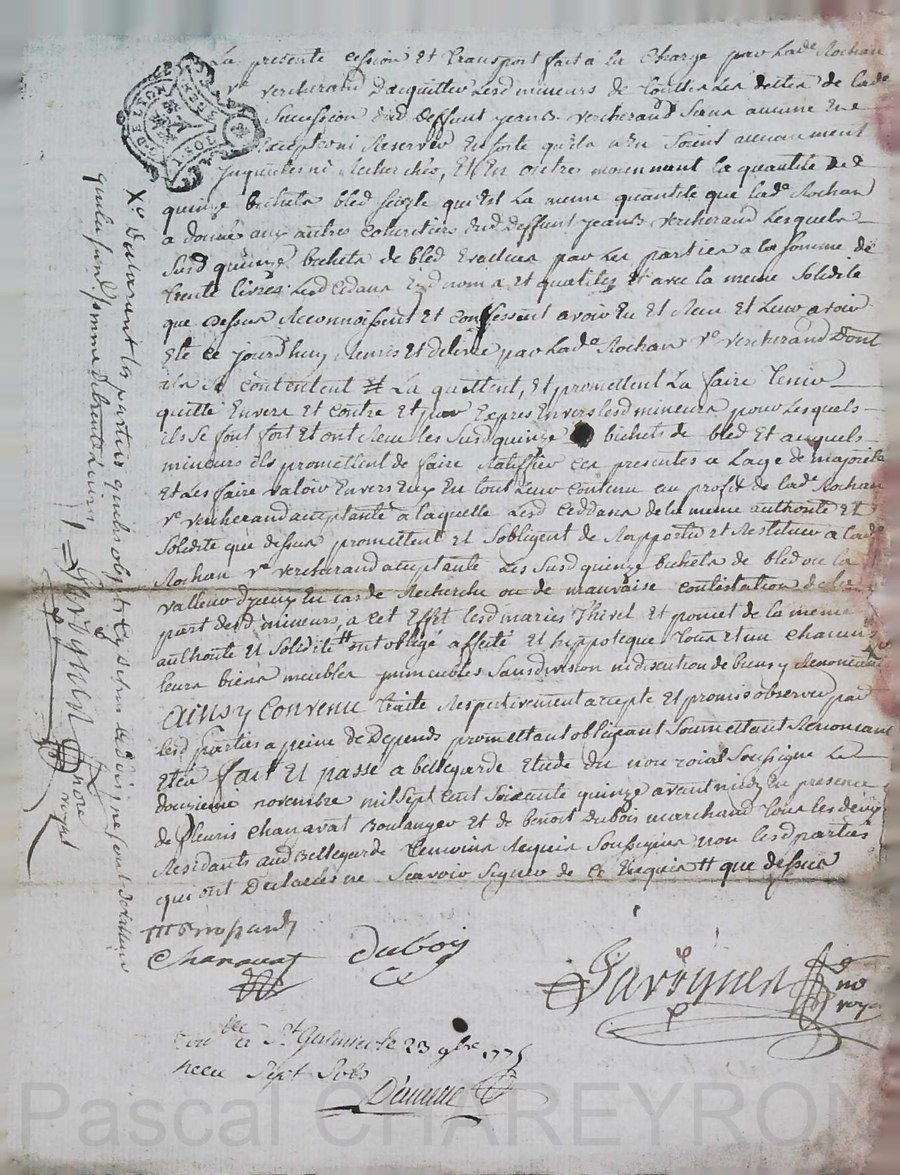 La présente cession et transport fait à la charge par lad.e Rochan
v.e vercherand dacquitter lesd mineurs de toutes les dettes de lad.e
Succession dud deffunt jean B. vercherand Sans aucune Ex
ceptions ni Reserves En sorte quils n'en Soient aucunement
Inquietes ni Recherchés, Et En outres moyennant la quantité de
quinze bichets bled seigle qui Est la meme quantité que lad.e Rochan
a donné aux autres coheritiers dud Deffunt jean B. vercherand Lesquels
Susd quinze bichets de bled Evalués par les parties a la somme de
trente livres Lesd Cedans Esd noms et qualités Et avec la meme Solidité
que dessus Reconnoissent Et confessent avoir Eu Et Reçu Et Leur avoir
Eté ce jourd'huy Remis Et delivré par Lad.e Rochan v.e vercherand Dont
ils se contentent La quittent, Et promettent La faire Tenir
quitte Envers Et contre Et par Expres Envers lesd mineurs pour Lesquels
ils Se font fort Et ont Reçu les Susd quinze bichets de bled Et auxquels
mineurs ils promettent de faire Ratiffier ces presentes a Lage de majorité
Et Les faire valoir Envers Eux En tout Leur Contenu au profit de Lad.e Rochan
v.e vercherand acceptante à laquelle Lesd Ceddans de la meme authorité Et
Solidité que dessus promettent Et Sobligent de Rapporter et Restituer a Lad.e
Rochan v.e vercherand acceptante Les Susd quinze bichets de bled ou la
valleur d'yceux En cas de Recherche ou de mauvaise contestation de la
part desd mineurs, a cet Effet lesd mariés Thivel Et poncet de la meme
authorité Et Solidité ont obligé affecté Et hyppotequé Tous Et un chacuns
leurs biens meubles immeubles Sans division ni discution de biens y Renonceant
Ainsy Convenu Traité Respectivement accepté Et promis observer par
lesd parties a peine de Depends promettant obligeant Soumettant Renonceant
Etca fait Et passé a bellegarde Etude du not. roial Soussigné Le
douzieme novembre mil Sept Cent Soixante quinze avant midy En presence
de fleuris Chanavat Boulanger Et de benoit dubois marchand Tous les deux
Residants aud Bellegarde Temoins Requis Soussignés non lesd parties
qui ont Declarés ne Scavoir Signer de ce Enquis H que dessus
Chanavat DuBois
Gavoynen no.re roy
Con.lle a S.t Galmier le 23 9bre 1775
Recu Sept Sols
X.e Durerant les parties
GEN. DE LION
Pascal CHAREYRON